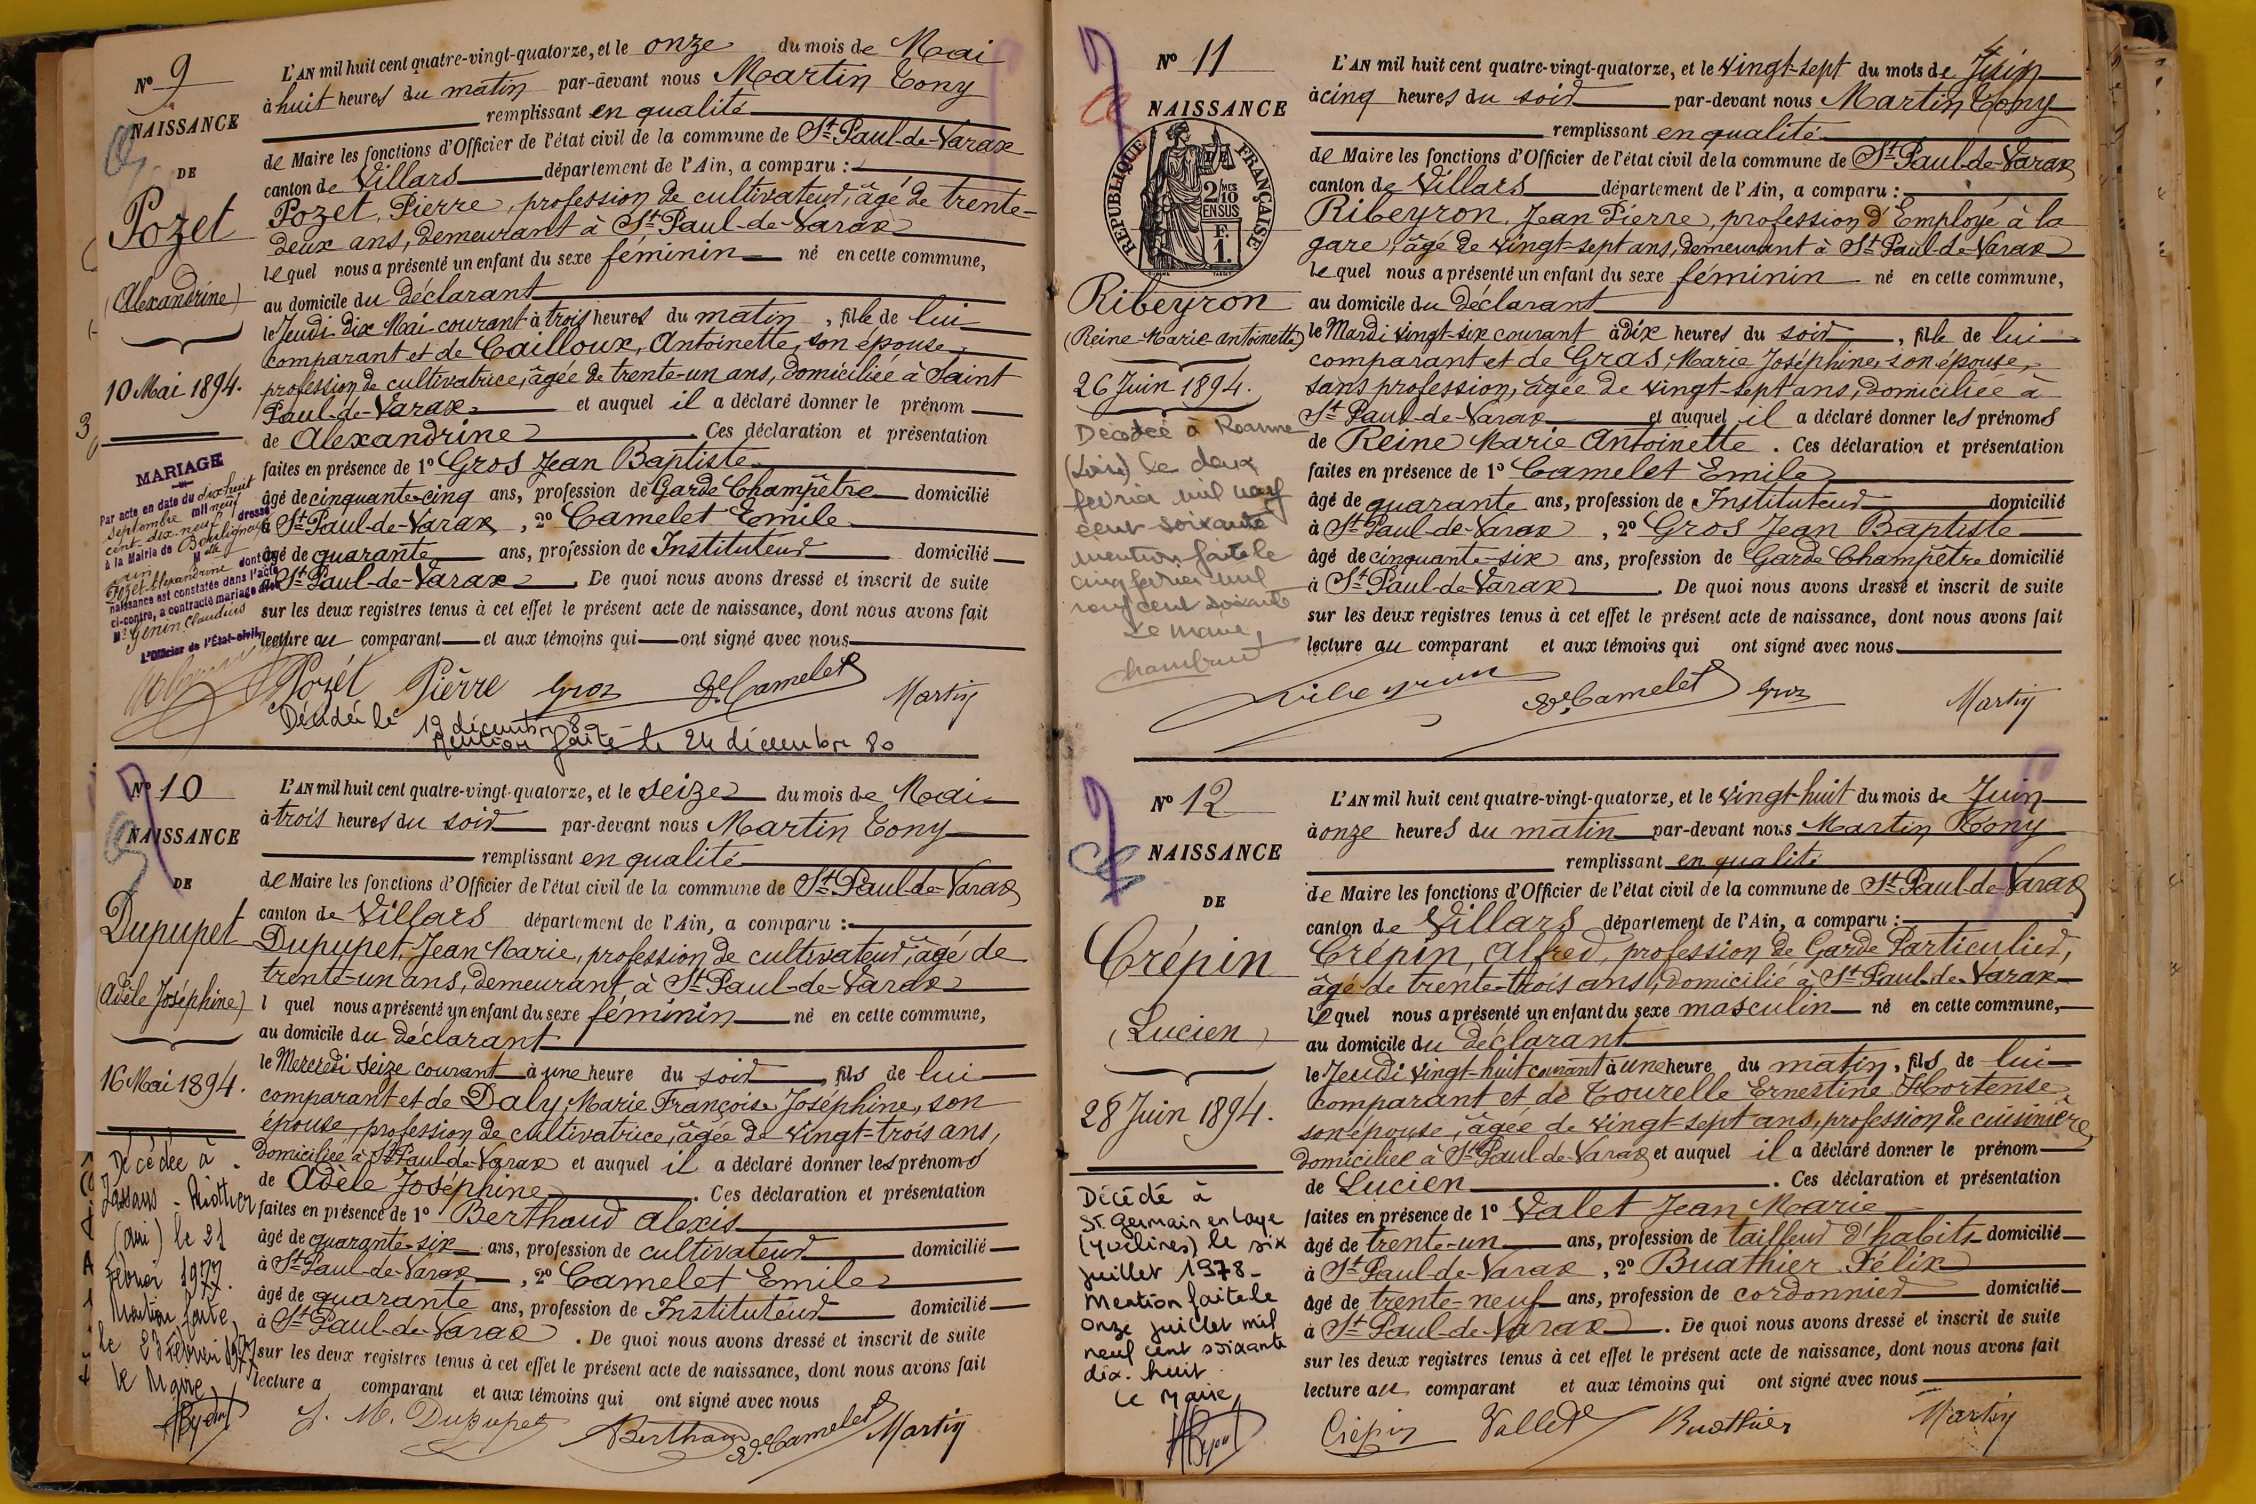 N° 9
NAISSANCE
DE
Pozet
(Alexandrine)
10 Mai 1894.
MARIAGE
Par acte en date du dix huit
septembre mil neuf
cent dix-neuf dressé
à la Mairie de Bouligneux
Ain Mlle dont la
Pozet Alexandrine
naissance est constatée dans l'acte
ci-contre, a contracté mariage avec
Mr Genin Claudius
L'Officier de l'État-civil,
L'AN mil huit cent quatre-vingt-quatorze, et le onze du mois de Mai
à huit heures du matin par-devant nous Martin Tony
remplissant en qualité
de Maire les fonctions d'Officier de l'état civil de la commune de St Paul-de-Varax
canton de Villars département de l'Ain, a comparu :
Pozet, Pierre, profession de cultivateur, âgé de trente-
deux ans, demeurant à St Paul-de-Varax
lequel nous a présenté un enfant du sexe féminin né en cette commune,
au domicile du déclarant
le Jeudi dix Mai courant à trois heures du matin, fille de lui
comparant et de Cailloux, Antoinette, son épouse,
profession de cultivatrice, âgée de trente-un ans, domiciliée à Saint
Paul-de-Varax et auquel il a déclaré donner le prénom
de Alexandrine. Ces déclaration et présentation
faites en présence de 1° Gros Jean Baptiste
âgé de cinquante-cinq ans, profession de Garde Champêtre domicilié
à St Paul-de-Varax, 2° Camelet Emile
âgé de quarante ans, profession de Instituteur domicilié
à St Paul-de-Varax. De quoi nous avons dressé et inscrit de suite
sur les deux registres tenus à cet effet le présent acte de naissance, dont nous avons fait
lecture au comparant et aux témoins qui ont signé avec nous
Pozet Pierre Gros Ee Camelet Martin
Décédée le 19 décembre 80
Mention faite le 24 décembre 80
N° 10
NAISSANCE
DE
Dupupet
(Adèle Joséphine)
16 Mai 1894.
Décédée à
Jassans - Riottier
(Ain) le 21
Février 1977.
Mention faite
le 23 Février 1977
le Maire
L'AN mil huit cent quatre-vingt-quatorze, et le seize du mois de Mai
à trois heures du soir par-devant nous Martin Tony
remplissant en qualité
de Maire les fonctions d'Officier de l'état civil de la commune de St Paul-de-Varax
canton de Villars département de l'Ain, a comparu :
Dupupet, Jean Marie, profession de cultivateur, âgé de
trente-un ans, demeurant à St Paul-de-Varax
l quel nous a présenté un enfant du sexe féminin né en cette commune,
au domicile du déclarant
le Mercredi seize courant à une heure du soir, fils de lui
comparant et de Daly, Marie Françoise Joséphine, son
épouse, profession de cultivatrice, âgée de vingt-trois ans,
domiciliée à St Paul-de-Varax et auquel il a déclaré donner les prénoms
de Adèle Joséphine. Ces déclaration et présentation
faites en présence de 1° Berthaud Alexis
âgé de quarante-six ans, profession de cultivateur domicilié
à St Paul-de-Varax, 2° Camelet Emile
âgé de quarante ans, profession de Instituteur domicilié
à St Paul-de-Varax. De quoi nous avons dressé et inscrit de suite
sur les deux registres tenus à cet effet le présent acte de naissance, dont nous avons fait
lecture a comparant et aux témoins qui ont signé avec nous
J. M. Dupupet Berthaud Ee Camelet Martin
N° 11
NAISSANCE
RÉPUBLIQUE FRANÇAISE
2/10 MES
EN SUS
F.
1.
Ribeyron
(Reine Marie Antoinette)
26 Juin 1894.
Décédée à Roanne
(Loire) le deux
février mil neuf
cent soixante
mention faite le
cinq février mil
neuf cent soixante
Le maire,
Chambrud
L'AN mil huit cent quatre-vingt-quatorze, et le vingt-sept du mois de Juin
à cinq heures du soir par-devant nous Martin Tony
remplissant en qualité
de Maire les fonctions d'Officier de l'état civil de la commune de St Paul-de-Varax
canton de Villars département de l'Ain, a comparu :
Ribeyron, Jean Pierre, profession d'Employé à la
gare, âgé de vingt-sept ans, demeurant à St Paul-de-Varax
lequel nous a présenté un enfant du sexe féminin né en cette commune,
au domicile du déclarant
le Mardi vingt-six courant à dix heures du soir, fille de lui
comparant et de Gras, Marie Joséphine, son épouse,
sans profession, âgée de vingt-sept ans, domiciliée à
St Paul-de-Varax et auquel il a déclaré donner les prénoms
de Reine Marie Antoinette. Ces déclaration et présentation
faites en présence de 1° Camelet Emile
âgé de quarante ans, profession de Instituteur domicilié
à St Paul-de-Varax, 2° Gros Jean Baptiste
âgé de cinquante-six ans, profession de Garde Champêtre domicilié
à St Paul-de-Varax. De quoi nous avons dressé et inscrit de suite
sur les deux registres tenus à cet effet le présent acte de naissance, dont nous avons fait
lecture au comparant et aux témoins qui ont signé avec nous
Ribeyron Ee Camelet Gros Martin
N° 12
NAISSANCE
DE
Crépin
(Lucien)
28 Juin 1894.
Décédé à
St. Germain en Laye
(Yvelines) le six
juillet 1978-
Mention faite le
onze juillet mil
neuf cent soixante
dix-huit.
Le Maire,
L'AN mil huit cent quatre-vingt-quatorze, et le vingt-huit du mois de Juin
à onze heures du matin par-devant nous Martin Tony
remplissant en qualité
de Maire les fonctions d'Officier de l'état civil de la commune de St Paul-de-Varax
canton de Villars département de l'Ain, a comparu :
Crépin, Alfred, profession de Garde Particulier,
âgé de trente-trois ans, domicilié à St Paul-de-Varax
lequel nous a présenté un enfant du sexe masculin né en cette commune,
au domicile du déclarant
le Jeudi vingt-huit courant à une heure du matin, fils de lui
comparant et de Tourelle Ernestine Hortense
son épouse, âgée de vingt-sept ans, profession de cuisinière,
domiciliée à St Paul-de-Varax et auquel il a déclaré donner le prénom
de Lucien. Ces déclaration et présentation
faites en présence de 1° Valet Jean Marie
âgé de trente-un ans, profession de tailleur d'habits domicilié
à St Paul-de-Varax, 2° Buathier Félix
âgé de trente-neuf ans, profession de cordonnier domicilié
à St Paul-de-Varax. De quoi nous avons dressé et inscrit de suite
sur les deux registres tenus à cet effet le présent acte de naissance, dont nous avons fait
lecture au comparant et aux témoins qui ont signé avec nous
Crépin Vallet Buathier Martin